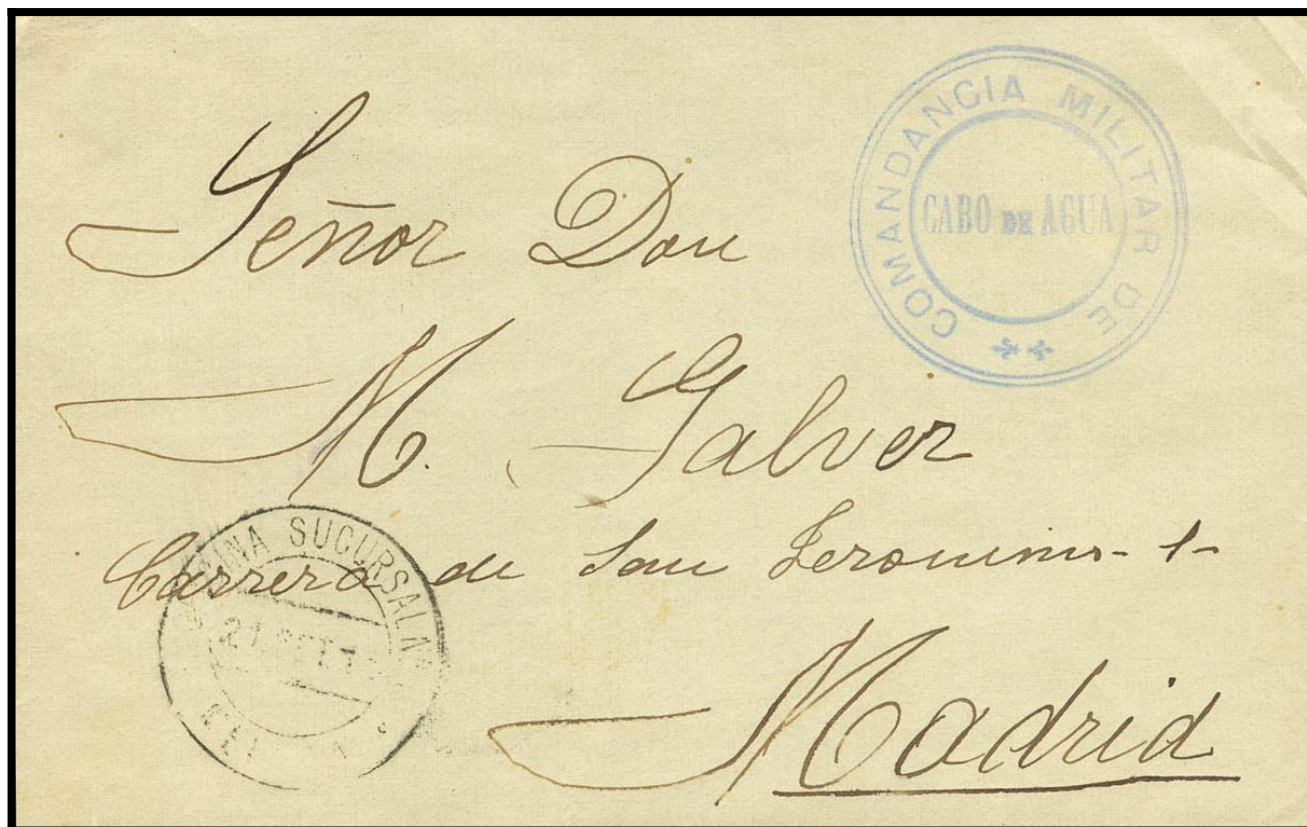 COMANDANCIA MILITAR DE
CABO DE AGUA
Señor Don
M. Galvez
Carrera de San Jeronimo - 1 -
Madrid
SUCURSAL